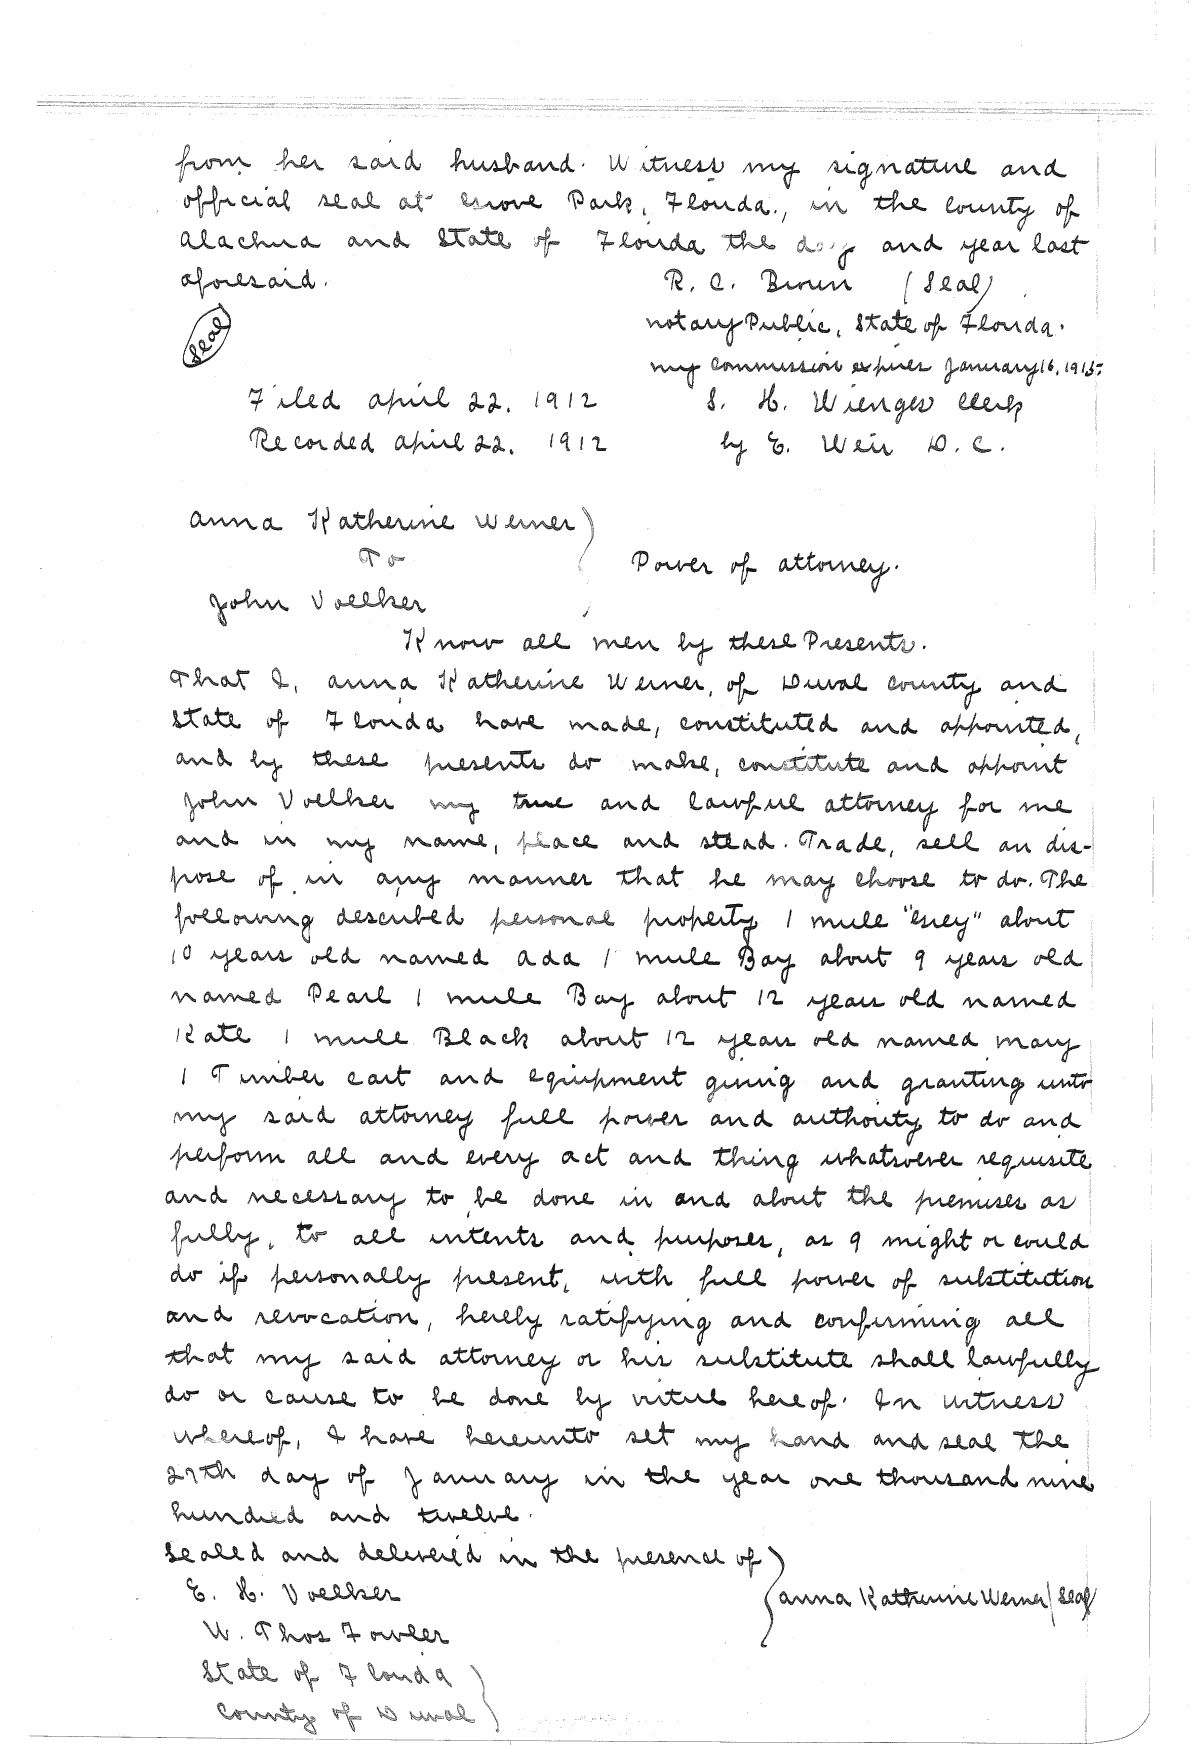 from her said husband. Witness my signature and
official seal at Grove Park, Florida., in the County of
Alachua and State of Florida the day and year last
aforesaid. R. C. Brown (Seal)
Seal
Notary Public, State of Florida.
My Commission expires January 16, 1915.
Filed April 22, 1912 S. H. Wienges Clerk
Recorded April 22, 1912 by E. Weir D.C.
Anna Katherine Werner
To
Power of Attorney.
John Voelker
Know all men by these Presents.
That I, Anna Katherine Werner, of Duval County and
State of Florida have made, constituted and appointed,
and by these presents do make, constitute and appoint
John Voelker my true and lawful attorney for me
and in my name, place and stead. Trade, sell an dis-
pose of in any manner that he may choose to do. The
following described personal property 1 mule about
10 years old named Ada 1 mule Bay about 9 years old
named Pearl 1 mule Bay about 12 years old named
Kate 1 mule Black about 12 years old named Mary
1 Timber cart and equipment giving and granting unto
my said attorney full power and authority to do and
perform all and every act and thing whatsoever requisite
and necessary to be done in and about the premises as
fully, to all intents and purposes, as I might or could
do if personally present, with full power of substitution
and revocation, hereby ratifying and confirming all
that my said attorney or his substitute shall lawfully
do or cause to be done by virtue hereof. In witness
whereof, I have hereunto set my hand and seal the
27th day of January in the year one thousand nine
hundred and twelve.
Sealed and delivered in the presence of
E. H. Voelker Anna Katherine Werner (Seal)
W. Thos Fowler
State of Florida
County of Duval